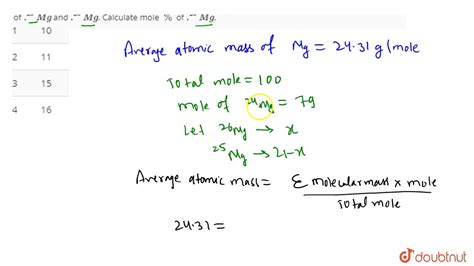 of .⁻⁻ Mg and .⁻⁻ Mg. Calculate mole % of .⁻⁻ Mg.
1 10
2 11
3 15
4 16
Average atomic mass of Mg = 24.31 g/mole
Total mole = 100
mole of ²⁴Mg = 79
Let ²⁶Mg → x
²⁵Mg → 21-x
Average atomic mass = Σ molecular mass x mole
Total mole
24.31 =
doubtnut